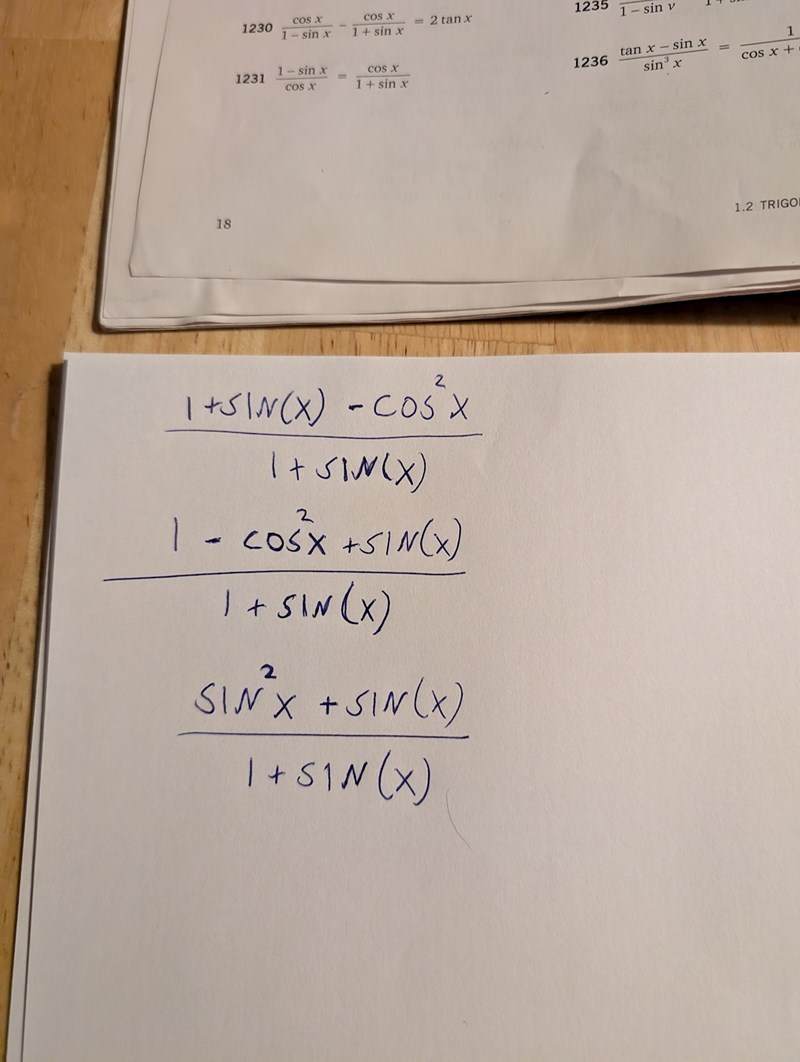 1230 cos x / 1 − sin x − cos x / 1 + sin x = 2 tan x
1231 1 − sin x / cos x = cos x / 1 + sin x
1235 1 − sin v
1236 tan x − sin x / sin³ x = 1 / cos x +
18
1.2 TRIGO
1+SIN(X) - COS²X
1+SIN(X)
1 - COS²X +SIN(X)
1+SIN(X)
SIN²X +SIN(X)
1+SIN(X)